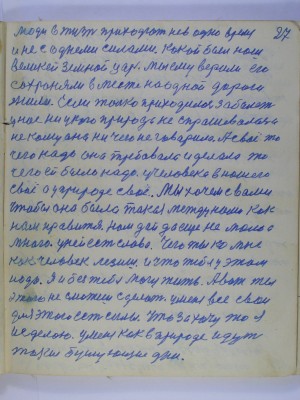 27
люди в жизь приходют не в одно время
и не с одними силами. Какой был наш
великой земной цар. Мы ему верили его
сохраняли вместе на одной дороги
жили. Если только приходилось заболеть
у нас никто природа не спрашивала
не кому она ни чего не говарила. А своё то
чего надо она требовала и делала то
чего ей было надо. У человека внашего
своё а у природе своё. Мы хочем с вами
чтобы она была такая между нами как
нам нравится. Нам дай да еще не мало а
много. У ней есть слова. Чего ты ко мне
как человек лезиш. и что тебе у этом
надо. Я и без тебя могу жить. А вот ты
этого не сможеш сделать. у меня все свои
для этого есть силы. Что захочу то я
и сделаю. у меня как в природе идут
такие бушующие дни.